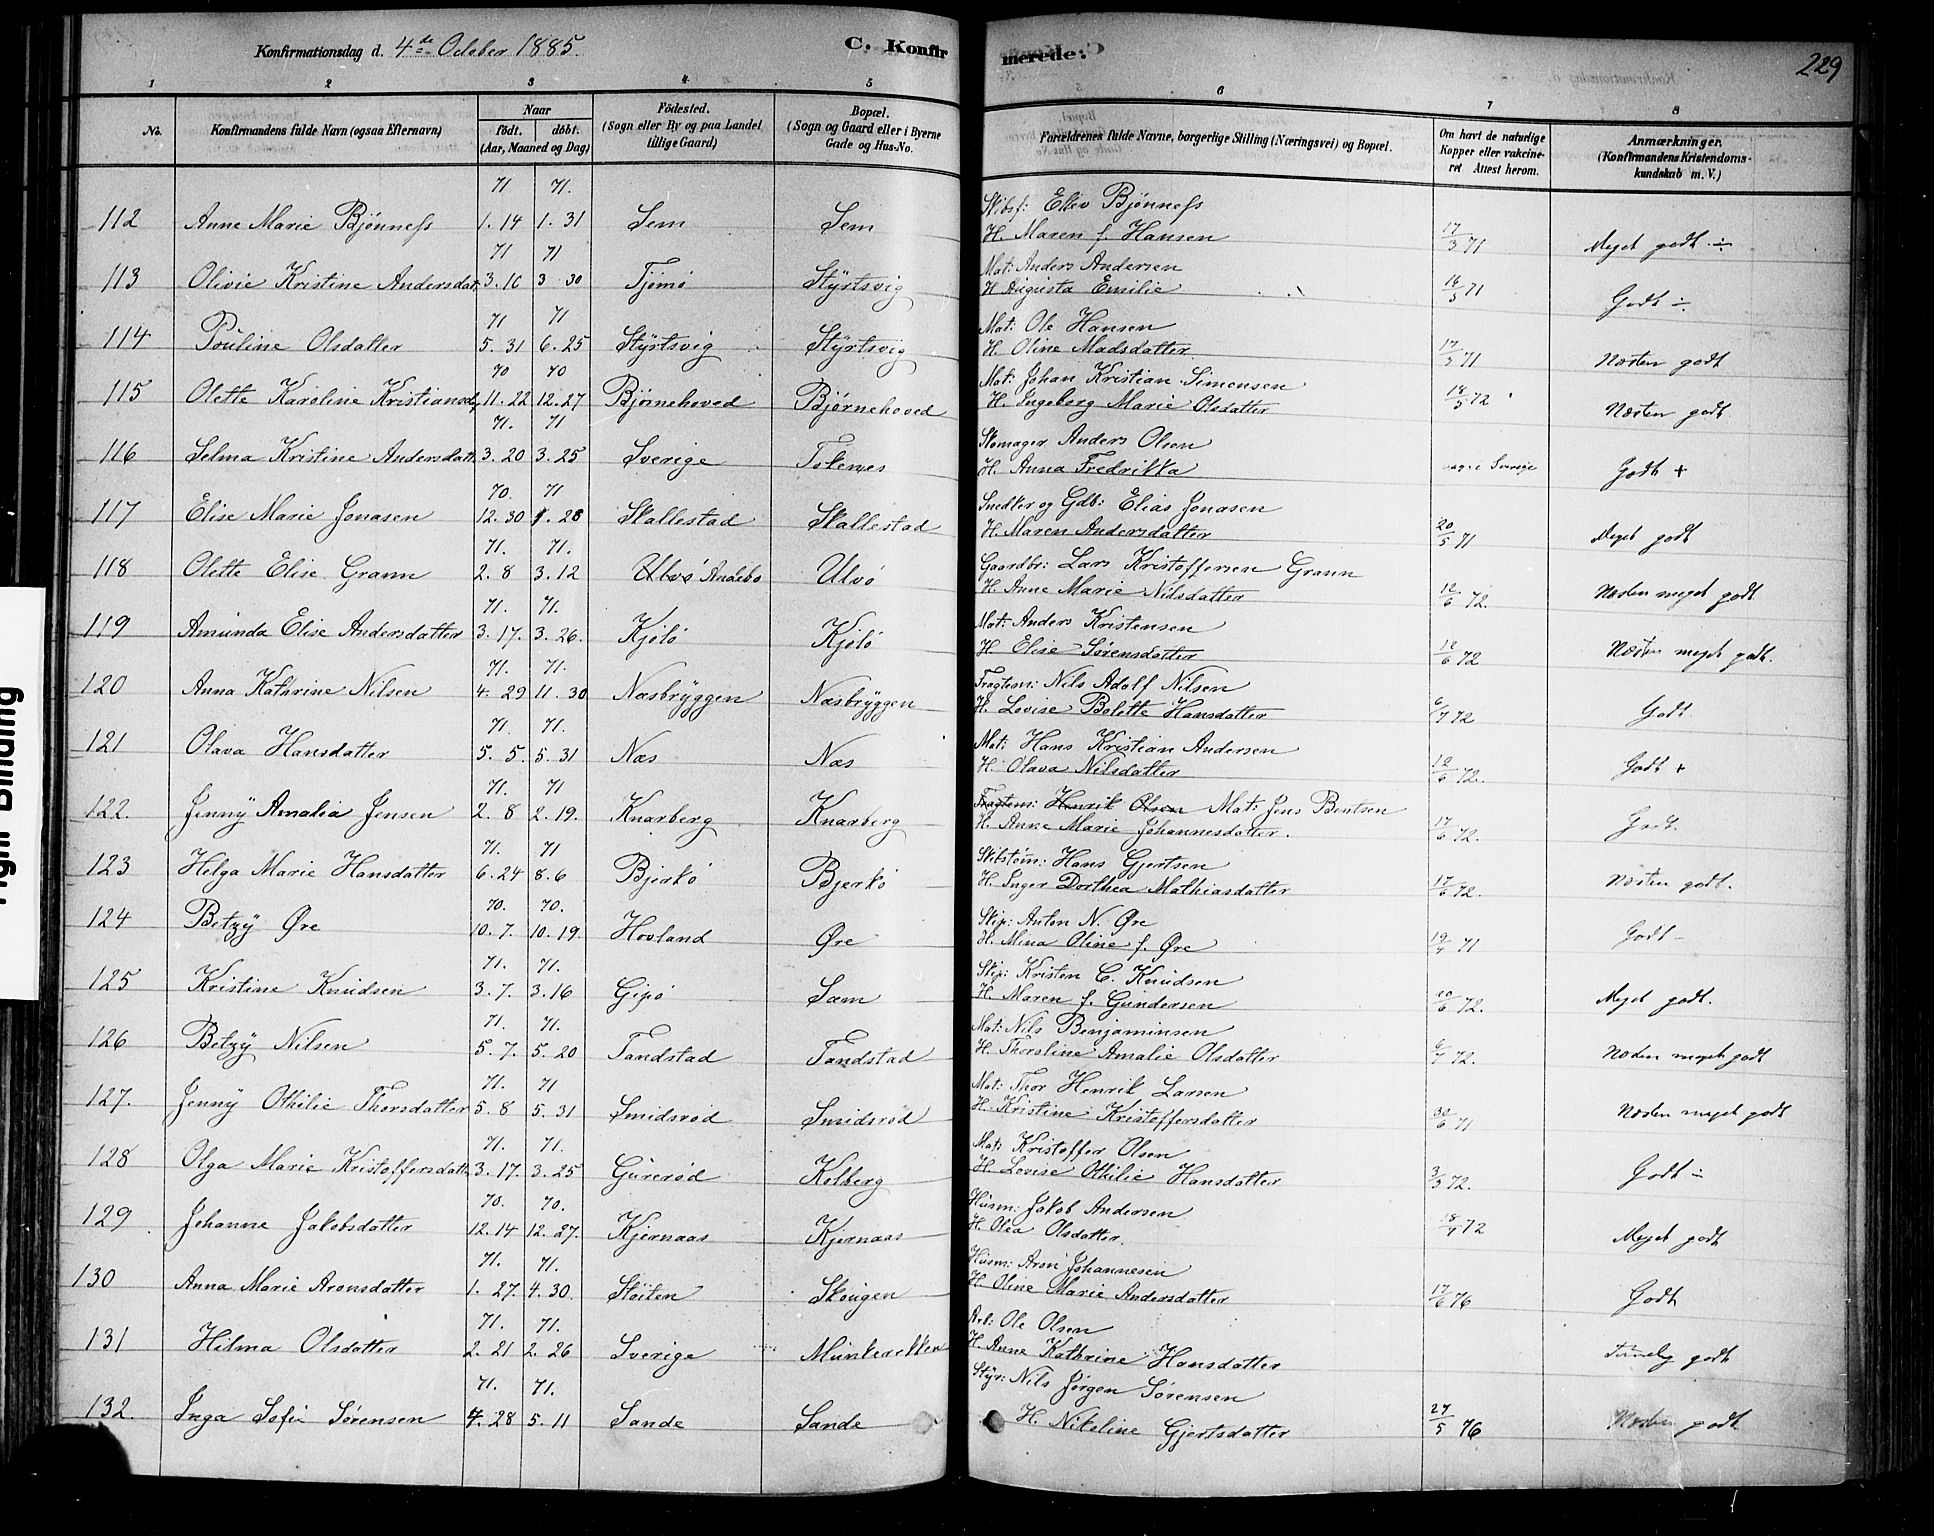 Konfirmationsdag d. 4de October 1885.
C. Konfirmerede.
229
1 2 3 4 5 6 7 8
No.
Konfirmandens fulde Navn (ogsaa Efternavn)
Naar
født. døbt.
(Aar, Maaned og Dag)
Fødested.
(Sogn eller By og paa Landet
tillige Gaard)
Bopæl.
(Sogn og Gaard eller i Byerne
Gade og Hus-No.
Forældrenes fulde Navne, borgerlige Stilling (Næringsvei) og Bopæl.
Om havt de naturlige
Kopper eller vakcineret
Attest herom.
Anmærkninger.
(Konfirmandens Kristendomskundskab
m. V.)
71 71. Skibsf: Ellev Bjønness
112 Anne Marie Bjønness 1. 14 1. 31 Sem Sem H. Maren f. Hansen 17/3 71 Meget godt ÷
71 71 Mat: Anders Andersen
113 Olivie Kristine Andersdat 3. 16 3 30 Tjømø Styrtsvig H Augusta Emilie 16/5 71 Godt ÷
71 71 Mat: Ole Hansen
114 Pouline Olsdatter 5. 31 6. 25 Styrtsvig Styrtsvig H. Oline Madsdatter 17/5 71 Næsten godt
70 70 Mat: Johan Kristian Simensen
115 Olette Karoline Kristiansd 11. 22 12. 27 Bjørnehoved Bjørnehoved H. Ingeborg Marie Olsdatter 18/5 72 Næsten godt
71. 71 Skomager Anders Olsen
116 Selma Kristine Andersdatt 3. 20 3. 25 Sverige Tokenes H. Anna Fredrikka i Sverige Godt +
70. 71 Snedker og Gdb: Elias Jonasen
117 Elise Marie Jonasen 12. 30 1. 28 Skallestad Skallestad H. Maren Andersdatter 20/5 71 Meget godt
71. 71. Gaardbr: Lars Kristoffersen Grann
118 Olette Elise Grann 2. 8 3. 12 Ulvø Andebo Ulvø H. Anne Marie Nilsdatter 12/6 72. Næsten meget godt
71. 71. Mat: Anders Kristensen
119 Amunda Elise Andersdatter 3. 17. 3. 26. Kjølø Kjølø H. Elise Sørensdatter 12/6 72 Næsten meget godt.
71. 71. Fragtem: Nils Adolf Nilsen
120 Anna Kathrine Nilsen 4. 29 11. 30 Næsbryggen Næsbryggen H. Lovise Bolette Hansdatter 6/7 72 Godt
71. 71. Mat: Hans Kristian Andersen
121 Olava Hansdatter 5. 5. 5. 31 Næs Næs H. Olava Nilsdatter 12/6 72. Godt +
71. 71 Fragtem: Henrik Olsen Mat: Jens Bentsen
122. Jenny Amalia Jensen 2. 8 2. 19. Knarberg Knarberg H. Anne Marie Johannesdatter. 17/6 72. Godt.
71. 71 Skibstøm: Hans Gjertsen
123 Helga Marie Hansdatter 6. 24 8. 6 Bjerkø Bjerkø H. Inger Dorthea Mathiasdatter 17/6 72. Næsten godt.
70. 70. Skip: Anton N. Øre
124 Betzy Øre 10. 7. 10. 19. Hovland Øre H. Mina Oline f. Øre 19/4 71 Godt –
71. 71. Skip: Kristen C. Knudsen
125 Kristine Knudsen 3. 7. 3. 16 Gipø Sæm H. Maren f. Gundersen 20/6 72. Meget godt.
71. 71. Mat: Nils Benjaminsen
126 Betzy Nilsen 5. 7. 5. 20 Tandstad Tandstad H. Thorsline Amalie Olsdatter 6/7 72. Næsten meget godt
71. 71 Mat: Thor Henrik Larsen
127. Jenny Othilie Thorsdatter 5. 8 5. 31 Smidsrød Smidsrød H. Kristine Kristoffersdatter 30/6 71 Næsten meget godt
71. 71. Mat: Kristoffer Olsen
128 Olga Marie Kristoffersdatt 3. 17. 3. 25 Gurerød Kolberg H. Lovise Othilie Hansdatter 3/3 72. Godt ÷
70. 70. Husm: Jakob Andersen
129 Johanne Jakobsdatter 12. 14 12. 27. Kjernaas Kjernaas H. Olea Olsdatter. 18/1 72 Meget godt
71. 71. Husm: Aron Johannesen
130 Anna Marie Aronsdatter 1. 27. 4. 30. Støiten Skougen H. Oline Marie Andersdatter 17/6 76 Godt
71. 71. Arb: Ole Olsen
131 Hilma Olsdatter 2. 21 2. 26 Sverige Munkerekken H. Anne Kathrine Hansdatter Temelig godt
71. 71. Styr: Nils Jørgen Sørensen
132. Inga Sofie Sørensen 4. 28 5. 11 Sande Sande H. Nikoline Gjertsdatter 27/5 76 Næsten godt
Right Binding